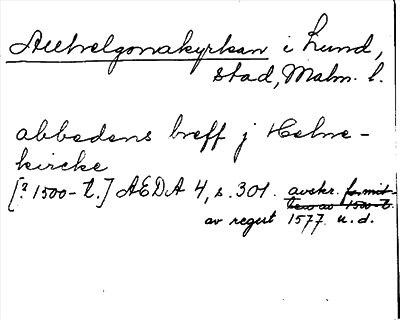 Allhelgonakyrkan i Lund,
stad, Malm. l.
abbedens breff j Helne-
kircke
[? 1500-t.] AEDA 4, s. 301. avskr. från mit-
ten av 1500-t.
av regest 1577 u. d.